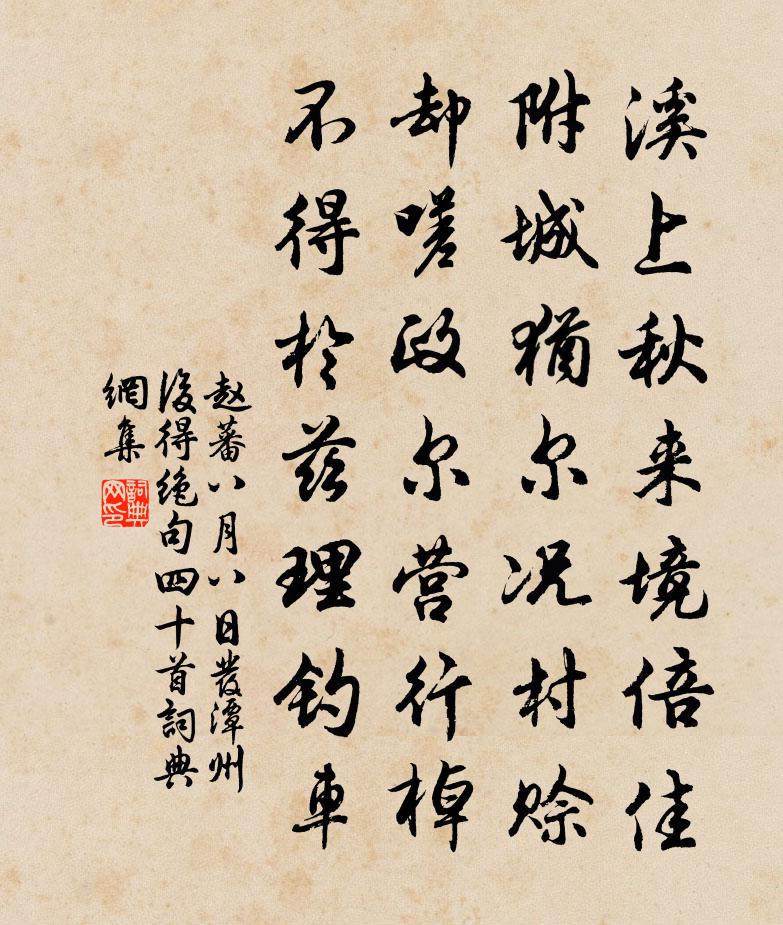 溪上秋来境倍佳
附城犹尔况村赊
却嗟政尔营行棹
不得於兹理钓車
赵蕃八月八日發潭州
後得絶句四十首詞典
網集
詞典
网印